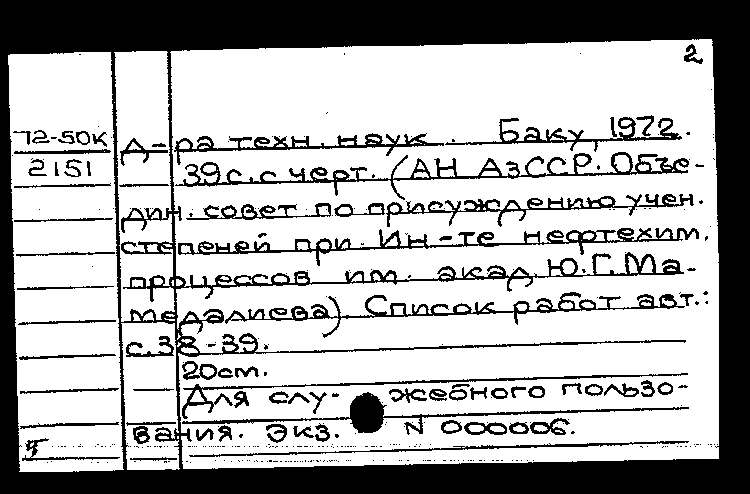 2
72-50к д-ра техн. наук. Баку, 1972.
2151 39с. с черт. (АН АзССР. Объе-
дин. совет по присуждению учен.
степеней при Ин-те нефтехим.
процессов им. акад. Ю.Г. Ма-
медалиева). Список работ авт.:
с. 38-39.
20см.
Для слу- жебного пользо-
вания. Экз. N 000006.